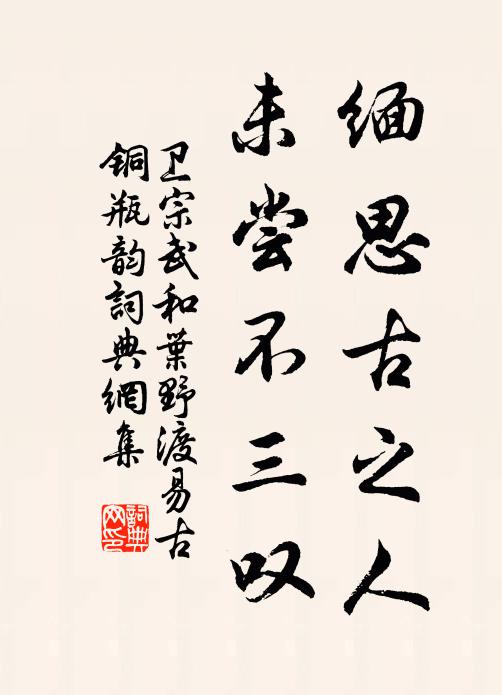 缅思古之人
未尝不三叹
卫宗武和葉野渡易古
铜瓶韵詞典網集
詞典网印